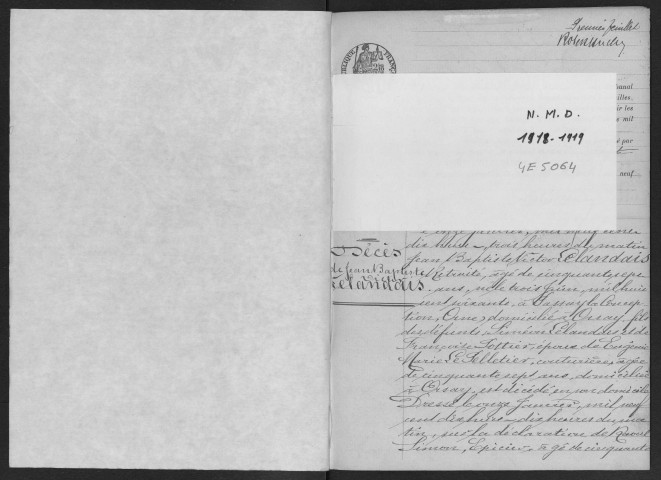 Premier feuillet
RÉPUBLIQUE FRANÇ
unal
illes,
ir les
s mil
par
neuf
N. M. D.
1918-1919
4E 5064
Décès
de Jean Baptiste
Lelandais
Le onze janvier, mil neuf cent
dix huit, trois heures du matin
Jean Baptiste Victor Lelandais
Retraité, âgé de cinquante sept
ans, né le trois juin, mil huit
cent soixante, à la
tion, Orne, domicilié à Orsay, fils
des défunts Siméon Lelandais et de
Françoise époux de Eugénie
Marie Le Pelletier, couturière, âgée
de cinquante sept ans, domiciliée
à Orsay, est décédé en son domicile
Dressé le onze janvier, mil neuf
cent dix huit, dix heures du ma
tin, sur la déclaration de Raoul
Simon, Epicier, âgé de cinquante